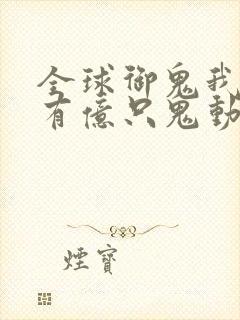 全球御鬼我
有億只鬼動
煙寶